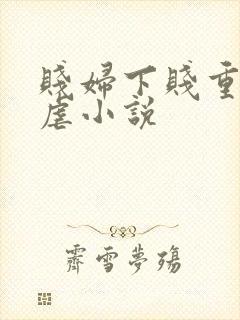 賤婦下賤重
虐小說
霽雪夢殤